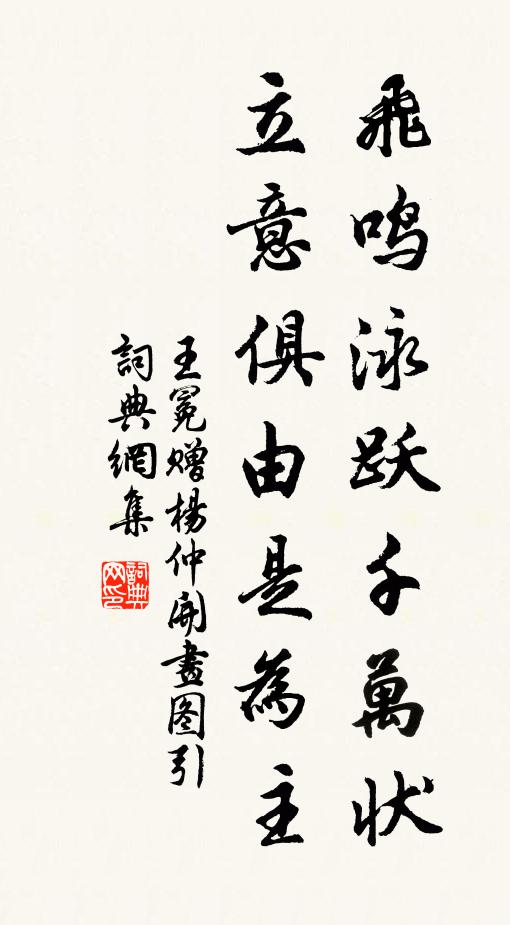 飛鳴泳跃千萬状
立意俱由是為主
王冕赠楊仲開畫图引
詞典網集
詞典網印